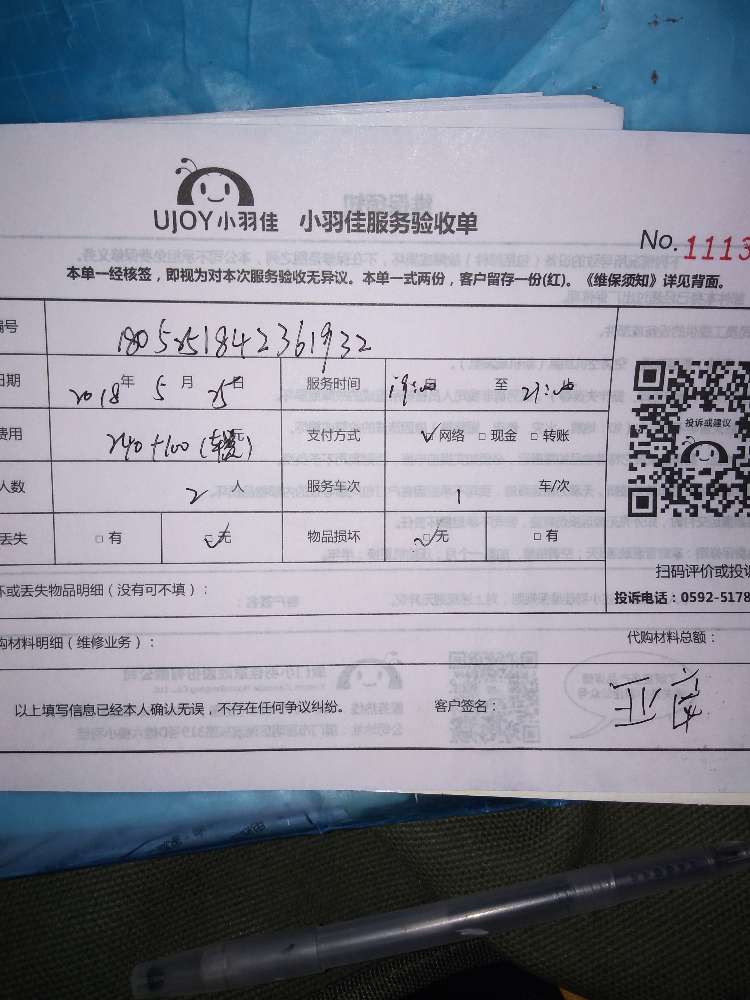 UJOY小羽佳 小羽佳服务验收单
No. 1113
本单一经核签，即视为对本次服务验收无异议。本单一式两份，客户留存一份(红)。《维保须知》详见背面。
编号 1805251842361932
日期 2018年 5月 25日 服务时间 至
费用 240+100 支付方式 ☑网络 □现金 □转账
人数 2人 服务车次 1 车/次
丢失 □有 ☑无 物品损坏 ☑无 □有
投诉或建议
扫码评价或投诉
坏或丢失物品明细（没有可不填）：
投诉电话：0592-5178
购材料明细（维修业务）： 代购材料总额：
以上填写信息已经本人确认无误，不存在任何争议纠纷。 客户签名：